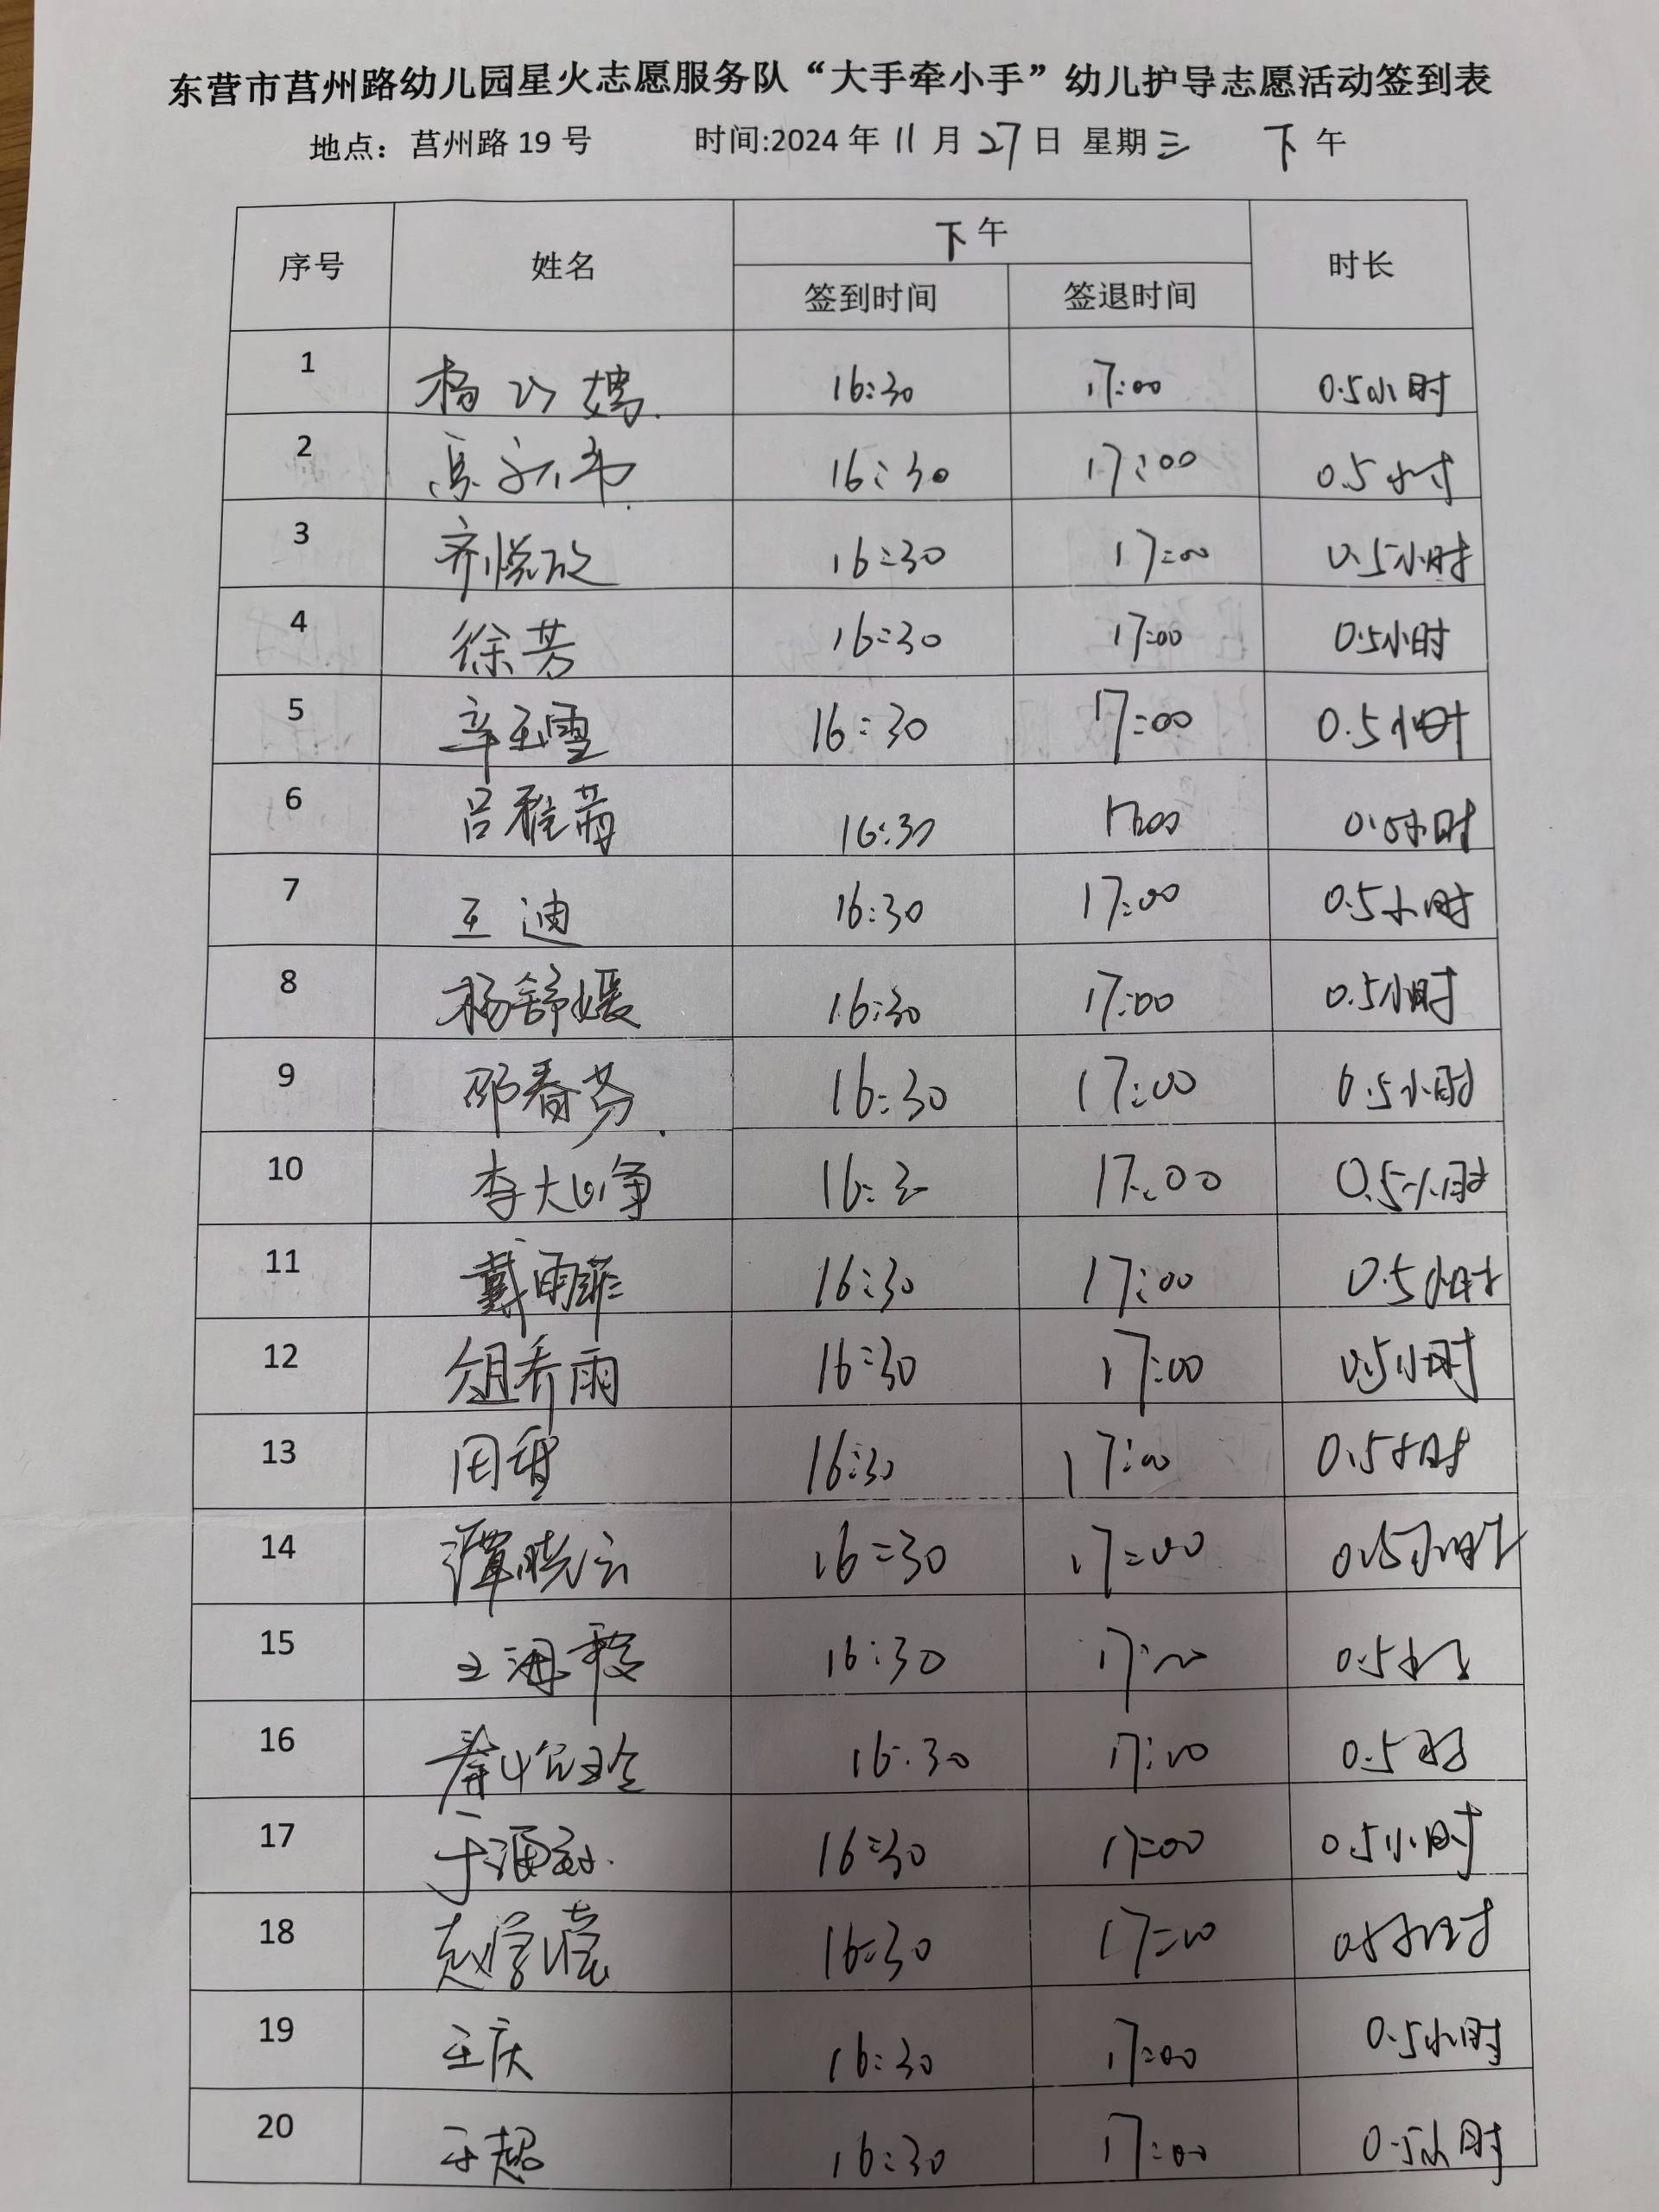 东营市莒州路幼儿园星火志愿服务队“大手牵小手”幼儿护导志愿活动签到表
地点：莒州路 19 号 时间:2024 年 11 月 27 日 星期三 下午
序号 姓名 下午 时长
签到时间 签退时间
1 杨 16:30 17:00 0.5小时
2 16:30 17:00 0.5小时
3 齐悦 16:30 17:00 0.5小时
4 徐芳 16:30 17:00 0.5小时
5 辛玉雪 16:30 17:00 0.5小时
6 吕雅 16:30 17:00 0.5小时
7 王迪 16:30 17:00 0.5小时
8 杨舒媛 16:30 17:00 0.5小时
9 邵春芬 16:30 17:00 0.5小时
10 李大峥 16:30 17:00 0.5小时
11 戴雨菲 16:30 17:00 0.5小时
12 乔雨 16:30 17:00 0.5小时
13 周甜 16:30 17:00 0.5小时
14 谭晓云 16:30 17:00 0.5小时
15 王海 16:30 17:00 0.5小时
16 16:30 17:00 0.5时
17 于 16:30 17:00 0.5小时
18 赵学莹 16:30 17:00 0.5小时
19 王庆 16:30 17:00 0.5小时
20 超 16:30 17:00 0.5小时